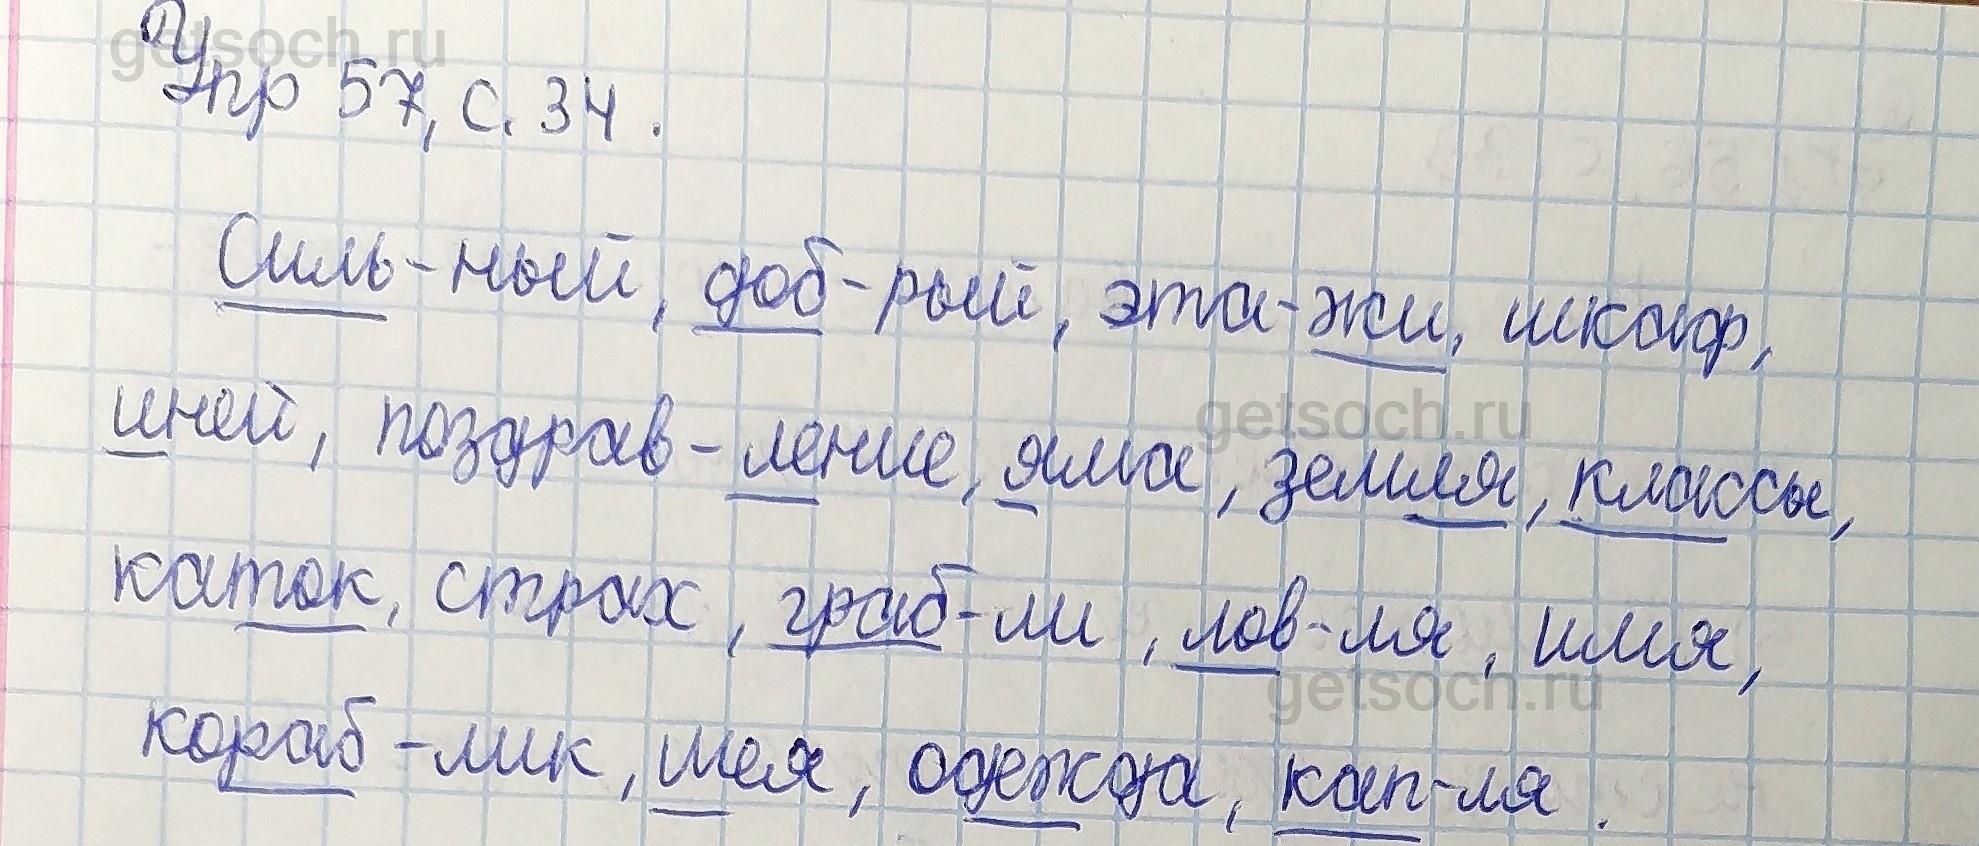 getsoch.ru
Упр 57, с. 34.
Силь-ный, доб-рый, эта-жи, шкаф,
getsoch.ru
иней, поздрав-ление, яма, земля, классы,
каток, страх, граб-ли, лов-ля, имя,
getsoch.ru
кораб-лик, шея, одежда, кап-ля.